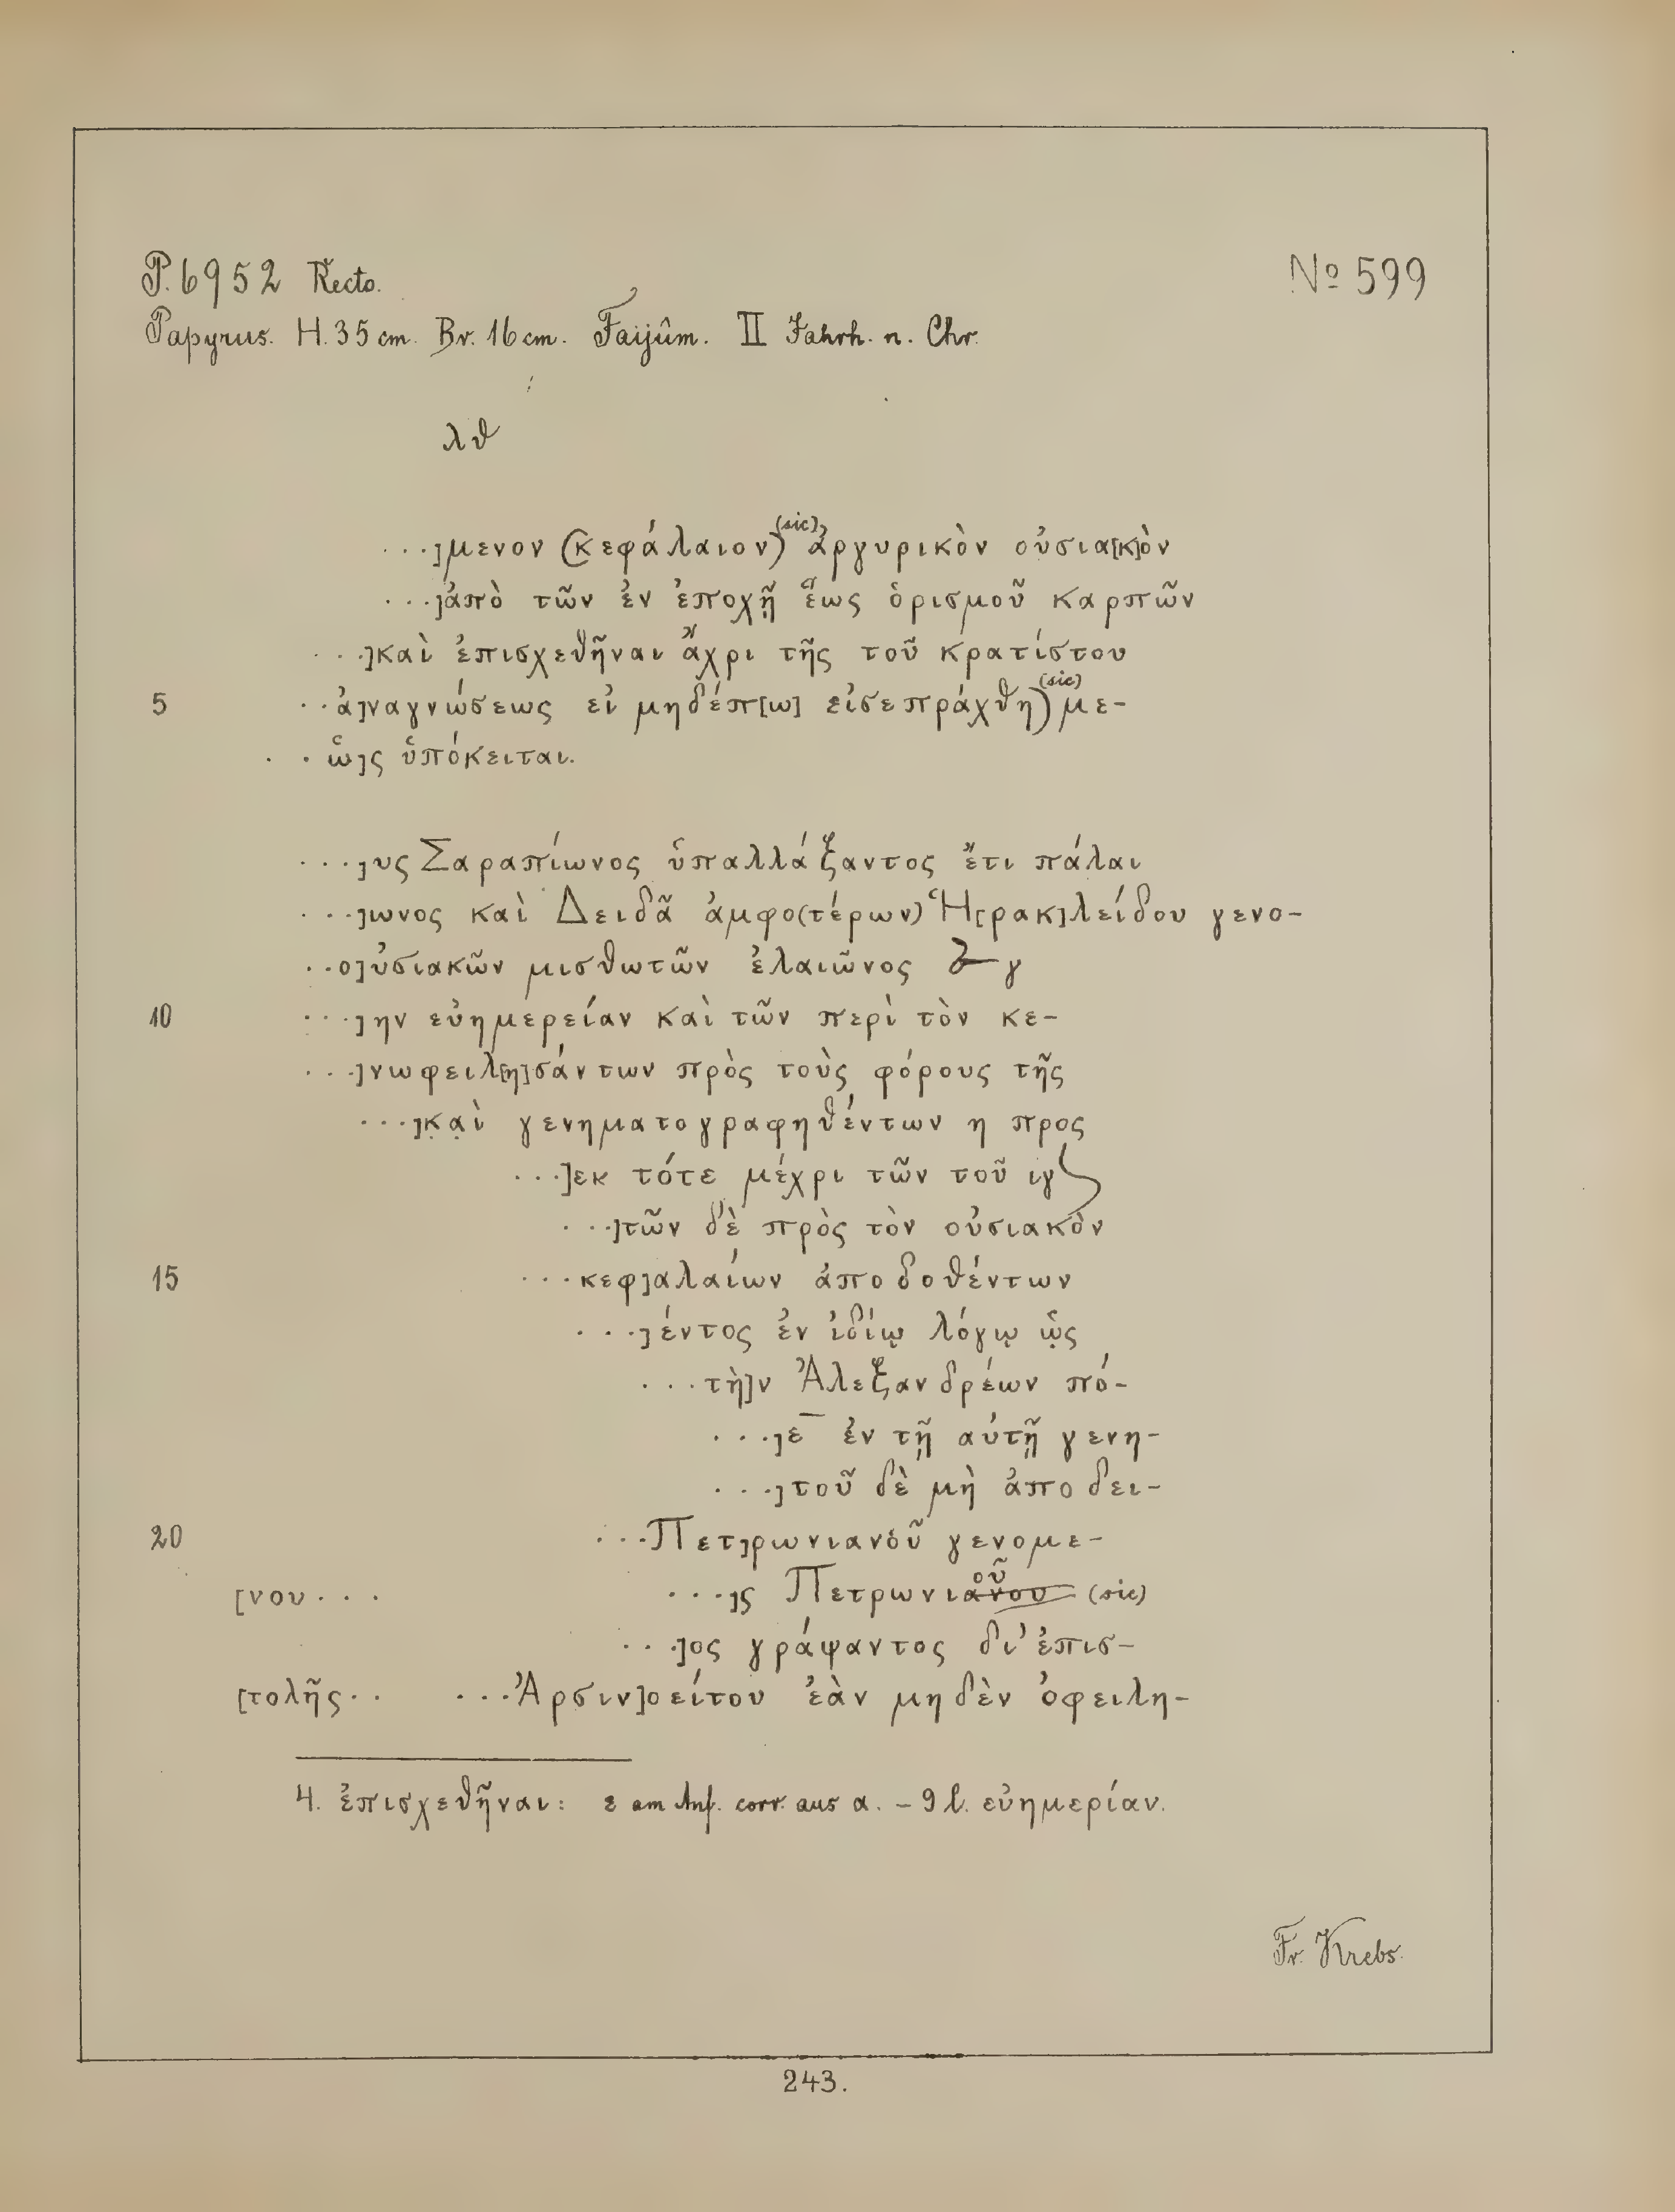 P. 6952 Recto. № 599
Papyrus. H. 35 cm. Br. 16 cm. Faijûm. II Jahrh. n. Chr.
λθ
...]μενον (κεφάλαιον) (sic) ἀργυρικὸν οὐσια[κ]ὸν
...]ἀπὸ τῶν ἐν ἐποχῇ ἕως ὁρισμοῦ καρπῶν
...]καὶ ἐπισχεθῆναι ἄχρι τῆς τοῦ κρατίστου
5 ..ἀ]ναγνώσεως εἰ μηδέπ[ω] εἰσεπράχθη) (sic) με-
..ὡ]ς ὑπόκειται.
...]υς Σαραπίωνος ὑπαλλάξαντος ἔτι πάλαι
...]ιωνος καὶ Δειδᾶ ἀμφο(τέρων) Ἡ[ρακ]λείδου γενο-
..ο]ὐσιακῶν μισθωτῶν ἐλαιῶνος γ
10 ...]ην εὐημερείαν καὶ τῶν περὶ τὸν κε-
...]νωφειλ[η]σάντων πρὸς τοὺς φόρους τῆς
...]κ̣α̣ὶ γενηματογραφηθέντων η προς
...]εκ τότε μέχρι τῶν τοῦ ιγ
...]τῶν δὲ πρὸς τὸν οὐσιακὸν
15 ...κεφ]αλαίων ἀποδοθέντων
...]έντος ἐν ἰδίῳ λόγῳ ὡς
...τὴ]ν Ἀλεξανδρέων πό-
...]ε̅ ἐν τῇ αὐτῇ γενη-
...]τοῦ δὲ μὴ ἀποδει-
20 ...Πετ]ρωνιανοῦ γενομε-
[νου... ...]ς Πετρωνιανου οῦ (sic)
...]ος γράψαντος δι' ἐπισ-
[τολῆς.. ...Ἀρσιν]οείτου ἐὰν μηδὲν ὀφειλη-
4. ἐπισχεθῆναι: ε am Anf. corr. aus α. – 9 l. εὐημερίαν.
Fr. Krebs.
243.